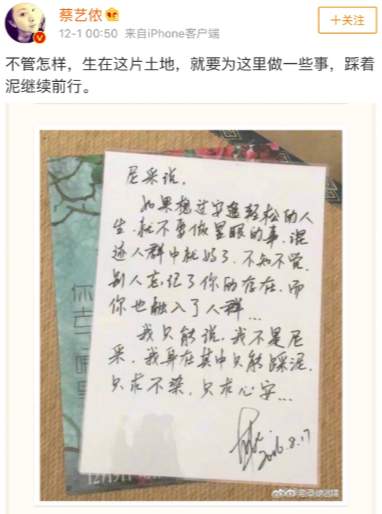 蔡艺侬
+关注
12-1 00:50 来自iPhone客户端
不管怎样，生在这片土地，就要为这里做一些事，踩着
泥继续前行。
尼采说，
如果想过安逸轻松的人
生，就不要做显眼的事，混
迹人群中就好了，不知不觉，
别人忘记了你的存在，而
你也融入了人群...
我只能说，我不是尼
采，我身在其中只能踩泥，
只求不染，只求心安...
2016.8.17